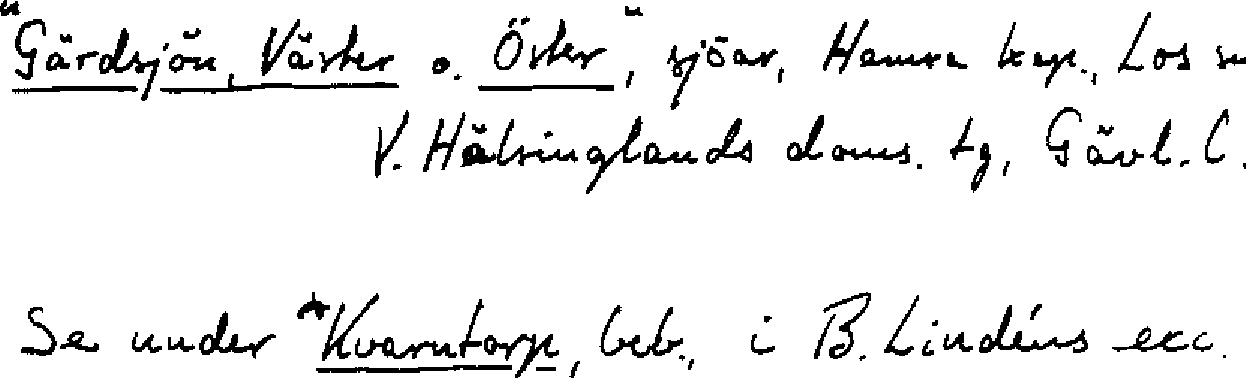 "Gärdsjön, Väster o. Öster", sjöar, Hamra kap., Los sn
V. Hälsinglands doms. tg, Gävl. l.
Se under *Kvarntorp, beb., i B. Lindéns exc.